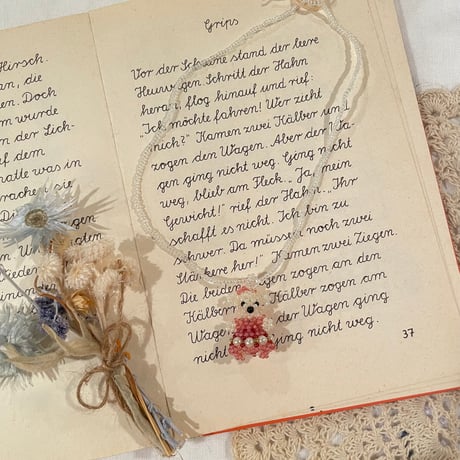 Hirsch.
an, die
en. Doch
m wurde
n der Lich-
f dem
hatte was in
Grips
Vor der Scheune stand der leere
Heuwagen. Schritt der Hahn
heran, flog hinauf und rief:
"Ich möchte fahren! Wer zieht
mich?" Kamen zwei Kälber und
zogen den Wagen. Aber der Wa-
gen ging nicht weg. Ging nicht
weg, blieb am Fleck. "Ja, mein
Gewicht!" rief der Hahn. "Ihr
schafft es nicht. Ich bin zu
schwer. Da müssen noch zwei
Stärkere her!" Kamen zwei Ziegen.
Die beiden zogen an den
Kälbern Kälber zogen am
Wagen der Wagen ging
nicht ging nicht weg.
37